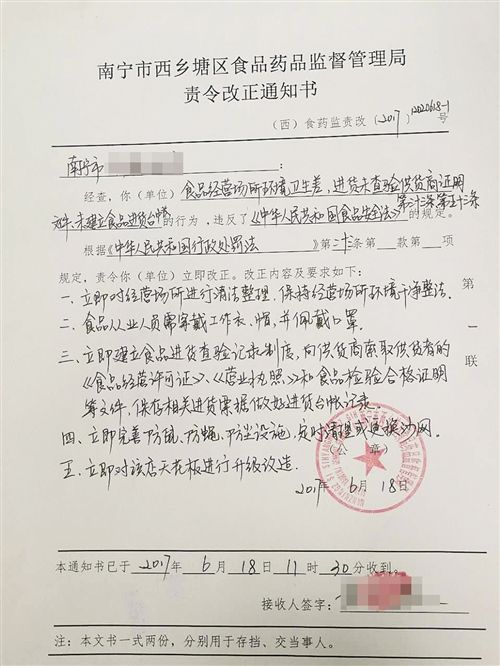 南宁市西乡塘区食品药品监督管理局
责令改正通知书
（西）食药监责改〔2017〕12020618-1号
南宁市 ：
经查，你（单位）食品经营场所环境卫生差，进货未查验供货商证明
文件，未建立食品进货台帐的行为，违反了《中华人民共和国食品安全法》第三十三条第五十三条的规定。
根据《中华人民共和国行政处罚法》第二十三条第 款第 项
规定，责令你（单位）立即改正。改正内容及要求如下：
一、立即对经营场所进行清洁整理，保持经营场所环境干净整洁。
二、食品从业人员需穿戴工作衣、帽，并佩戴口罩。
三、立即建立食品进货查验记录制度，向供货商索取供货者的
《食品经营许可证》、《营业执照》和食品检验合格证明
等文件，保存相关进货票据做好进货台帐记录。
四、立即完善防鼠、防蝇、防尘设施，定时清理或更换沙网。
（公 章）
五、立即对该店天花板进行升级改造。
2017年 6月 18日
第一联
本通知书已于 2017年 6月 18日 11时 30分收到。
接收人签字：
注：本文书一式两份，分别用于存档、交当事人。